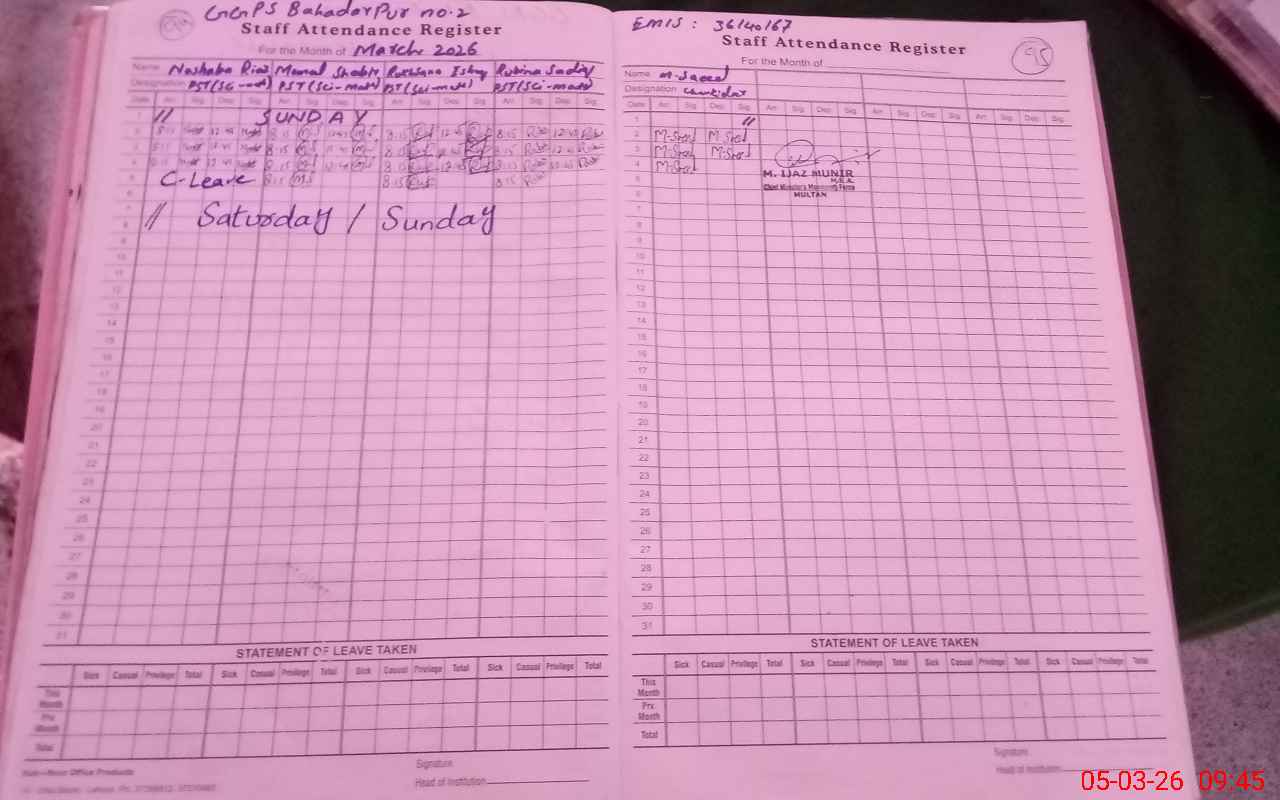 GGPS Bahadarpur no.2
Staff Attendance Register
For the Month of March 2026
Name Noshaba Riaz Momal Shabbir Rukhsana Ishaq Rubina Sadiq
Designation PST(Sci-math) PST(Sci-math) PST(Sci-math) PST(Sci-math)
Date Arr. Sig. Dep. Sig. Arr. Sig. Dep. Sig. Arr. Sig. Dep. Sig. Arr. Sig. Dep. Sig.
1 // SUNDAY
2 8:15 12:45 8:15 12:45 8:15 12:45 8:15 12:45
3 8:15 12:45 8:15 12:45 8:15 12:45 8:15 12:45
4 8:15 12:45 8:15 12:45 8:15 12:45 8:15 12:45
5 C-Leave 8:15 8:15 8:15
6
7
8 // Saturday / Sunday
9
10
11
12
13
14
15
16
17
18
19
20
21
22
23
24
25
26
27
28
29
30
31
STATEMENT OF LEAVE TAKEN
Sick Casual Privilege Total Sick Casual Privilege Total Sick Casual Privilege Total Sick Casual Privilege Total
This Month
Prx Month
Total
Signature
Head of Institution
EMIS : 36140167
Staff Attendance Register
95
For the Month of
Name M-Saeed
Designation Chowkidar
Date Arr. Sig. Dep. Sig. Arr. Sig. Dep. Sig. Arr. Sig. Dep. Sig. Arr. Sig. Dep. Sig.
1 //
2 M-Saeed M-Saeed
3 M-Saeed M-Saeed
4 M-Saeed
M. IJAZ MUNIR
M.E.A.
Chief Minister's Monitoring Force
MULTAN
5
6
7
8
9
10
11
12
13
14
15
16
17
18
19
20
21
22
23
24
25
26
27
28
29
30
31
STATEMENT OF LEAVE TAKEN
Sick Casual Privilege Total Sick Casual Privilege Total Sick Casual Privilege Total Sick Casual Privilege Total
This Month
Prx Month
Total
Signature
Head of Institution
05-03-26 09:45